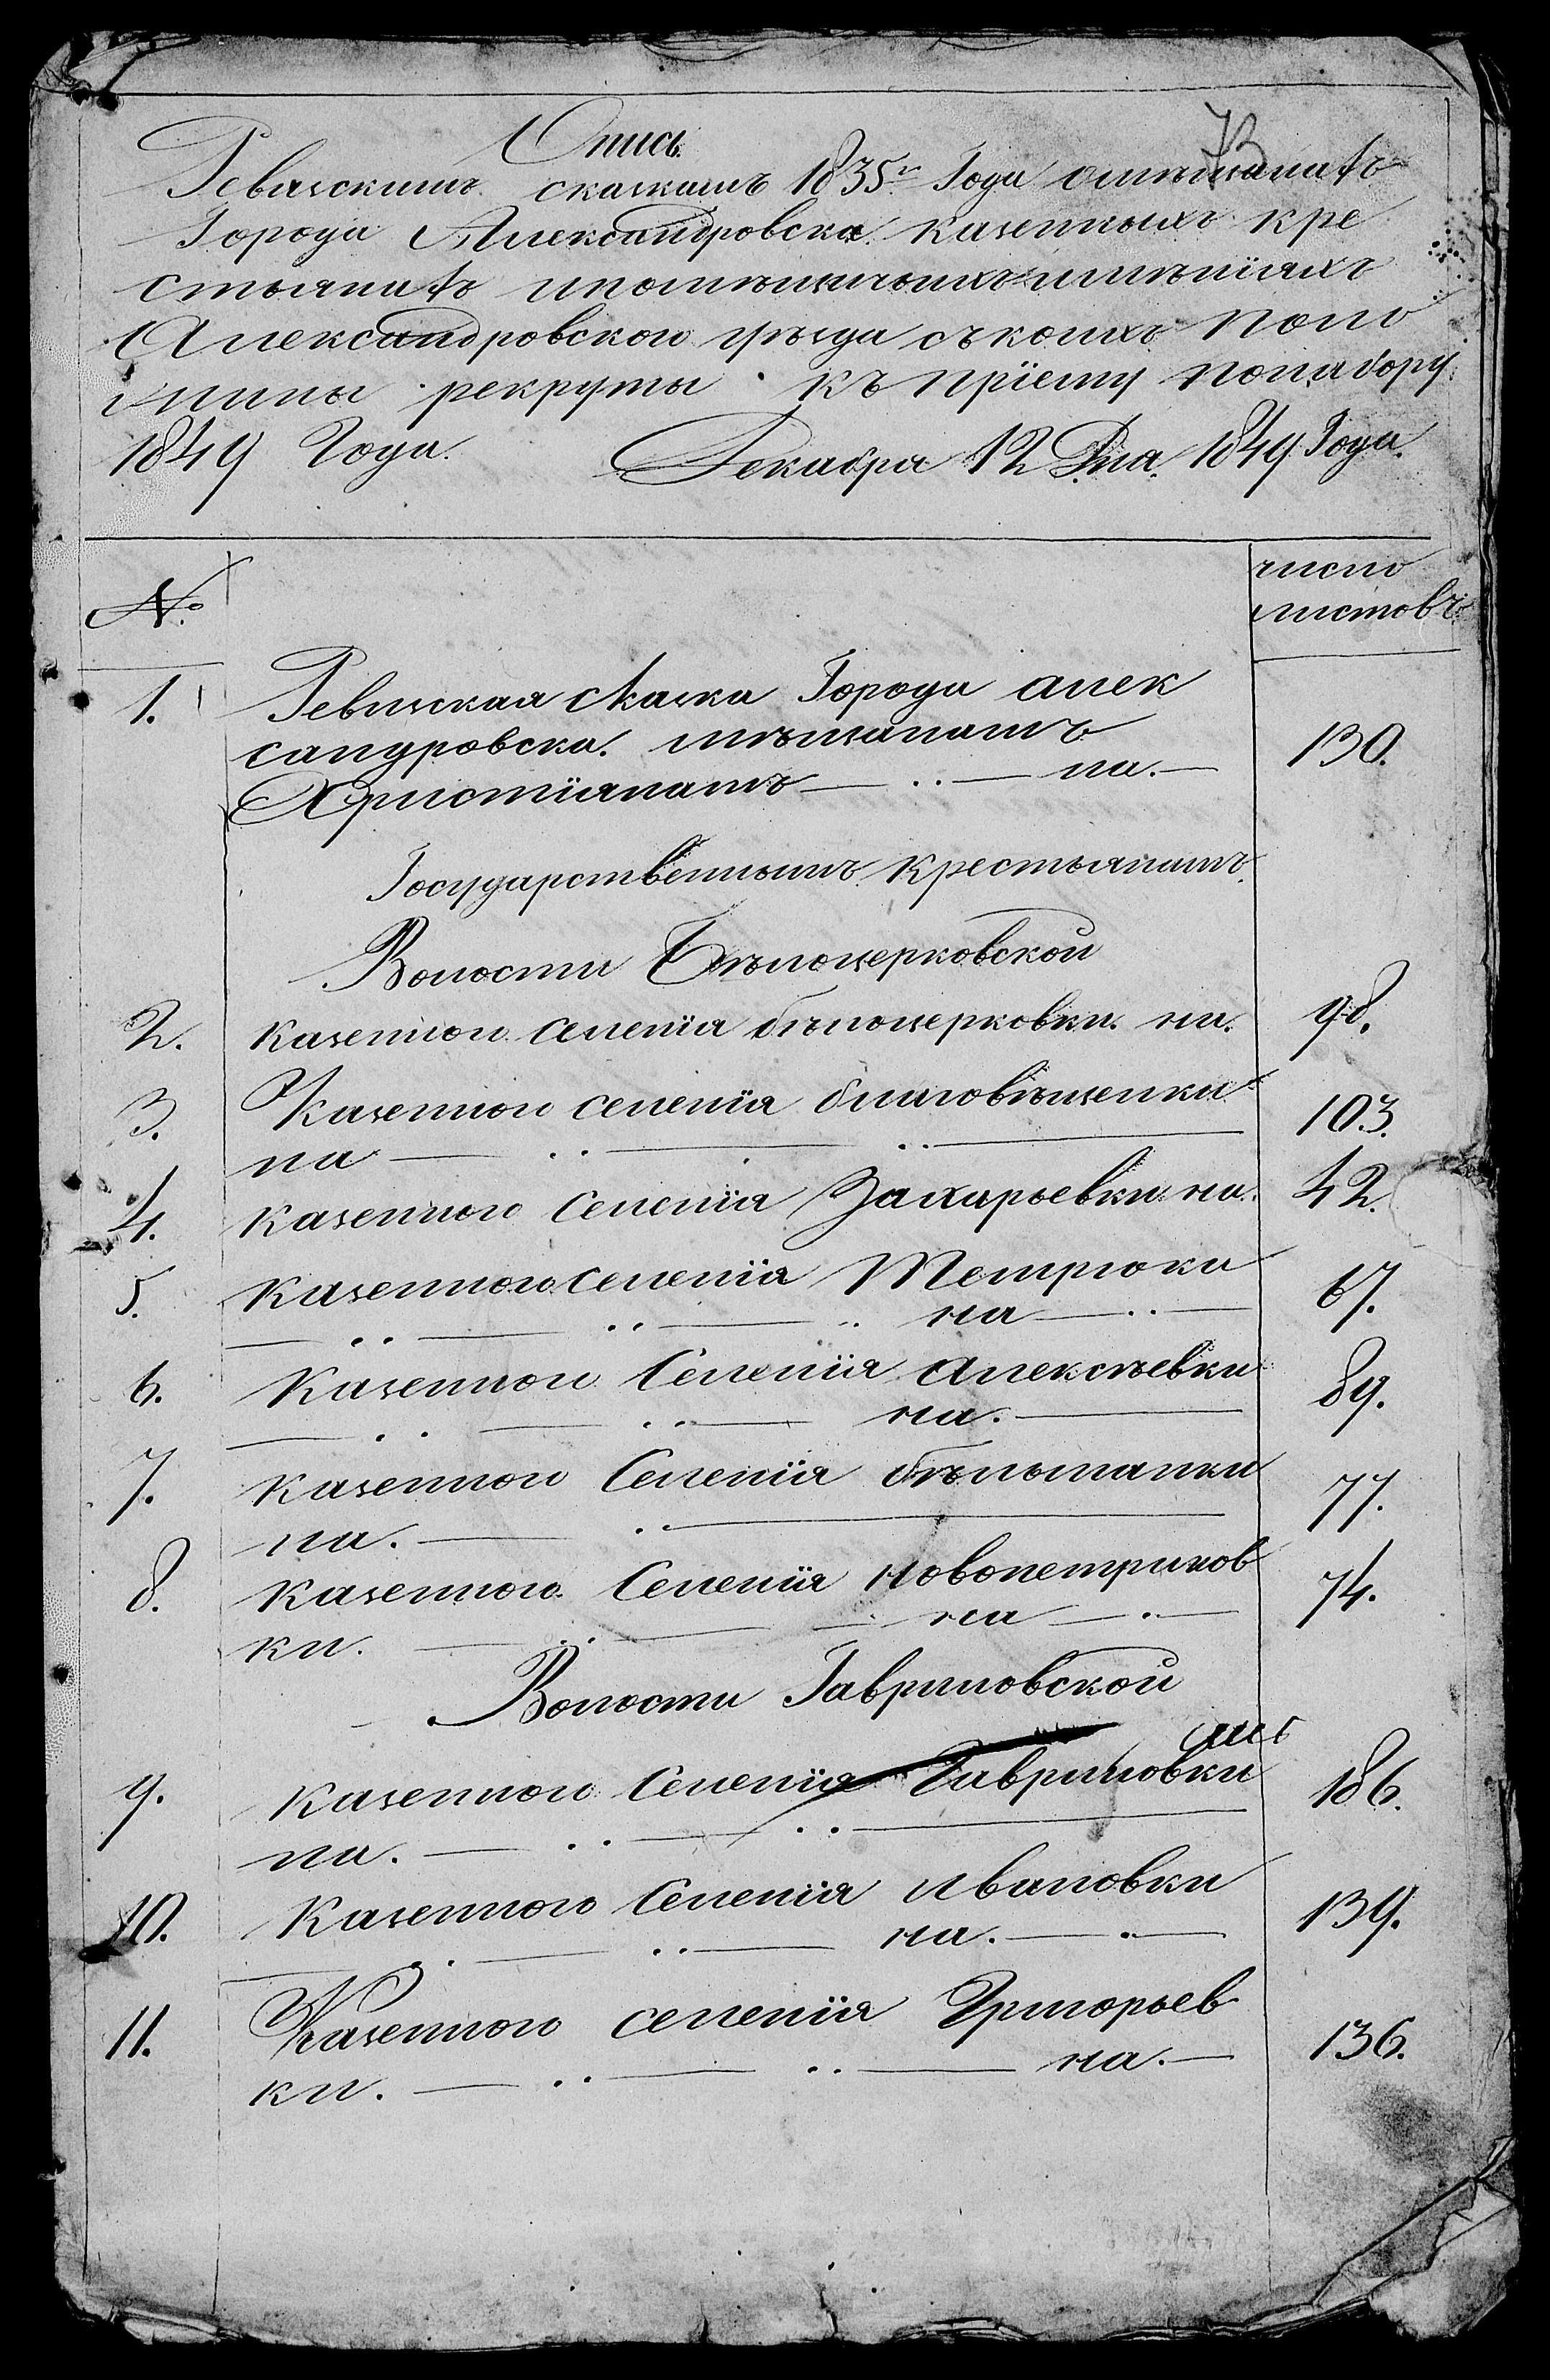 Опись
73
Ревизскимъ сказкамъ 1835г. Года о мѣщанахъ
Города Александровска казенныхъ кре
стьянахъ и помѣщичьихъ имѣнiяхъ
Александровского уѣзда съ коихъ
рекруты къ прiему по набору
1849 Года. Декабря 12 Дня. 1849 Года.
№.
число
листовъ
1. Ревизская Сказка Города алек
сандровска. мѣщанамъ
Христiанамъ — .. — на. — 130.
Государственнымъ крестьянамъ.
Волости Бѣлоцерковской
2. казенного селенiя бѣлоцерковки. на. 98.
3. Казенного селенiя благовѣщенки
на — .. — .. — 103.
4. казенного селенiя Захарьевки на. 42.
5. казенного селенiя Темрюка
— .. — .. — .. на — .. — 67.
6. казенного Селенiя алексѣевки
— .. — .. — на. — 89.
7. казенного Селенiя бѣльманки
на. — .. — 77.
8. казенного Селенiя новопетриков
ки. — .. — на — . — 74.
Волости Гавриловской
9. казенного Селенiя Гавриловки 186.
на. — .. — .. —
10. казенного Селенiя ивановки
— .. — .. — на. — . — 139.
11. Казенного селенiя Григорьев
ки. — .. — .. — на. — 136.